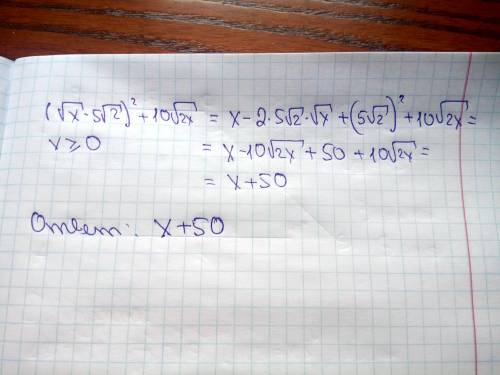 (√x - 5√2)² + 10√2x = x - 2·5√2·√x + (5√2)² + 10√2x =
x ⩾ 0 = x - 10√2x + 50 + 10√2x =
= x + 50
Ответ: x + 50